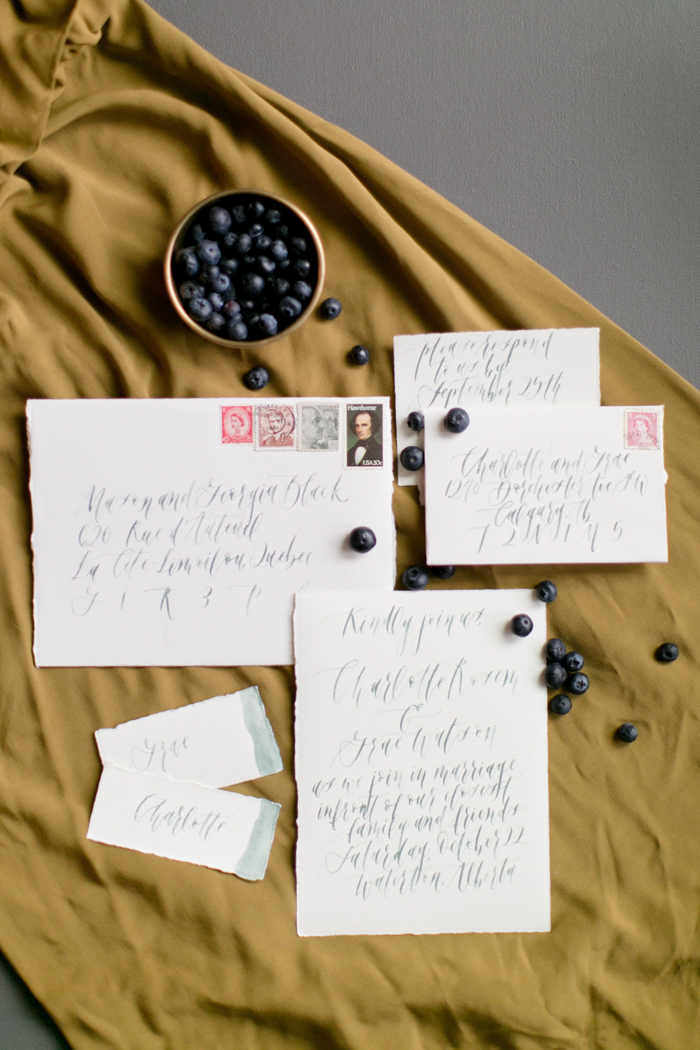 please respond
to us by
September 25th
Hawthorne
USA 20c
Charlotte and Grae
Dorchester Ave SW
Calgary, Ab
T 2 N 1 M 5
Mason and Georgia Black
620 Rue d'Auteuil
La Cité-Limoilou, Quebec
G 1 R 3 P
Kindly join us:
Charlotte Rozem
&
Grae Watson
as we join in marriage
infront of our closest
family and friends
Saturday, October 22
Waterton, Alberta
Grae
Charlotte